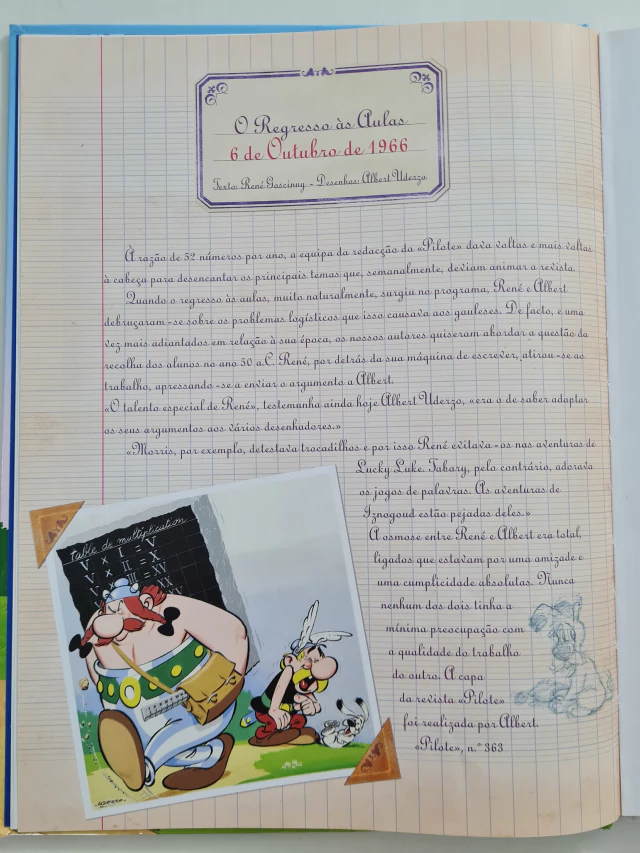 O Regresso às Aulas
6 de Outubro de 1966
Texto: René Goscinny - Desenhos: Albert Uderzo
À razão de 52 números por ano, a equipa da redacção da «Pilote» dava voltas e mais voltas
à cabeça para desencantar os principais temas que, semanalmente, deviam animar a revista.
Quando o regresso às aulas, muito naturalmente, surgiu no programa, René e Albert
debruçaram-se sobre os problemas logísticos que isso causava aos gauleses. De facto, e uma
vez mais adiantados em relação à sua época, os nossos autores quiseram abordar a questão da
recolha dos alunos no ano 50 a.C. René, por detrás da sua máquina de escrever, atirou-se ao
trabalho, apressando-se a enviar o argumento a Albert.
«O talento especial de René», testemunha ainda hoje Albert Uderzo, «era o de saber adaptar
os seus argumentos aos vários desenhadores.»
«Morris, por exemplo, detestava trocadilhos e por isso René evitava-os nas aventuras de
Lucky Luke. Tabary, pelo contrário, adorava
os jogos de palavras. As aventuras de
Iznogoud estão pejadas deles.»
A osmose entre René e Albert era total,
ligados que estavam por uma amizade e
uma cumplicidade absolutas. Nunca
nenhum dos dois tinha a
mínima preocupação com
a qualidade do trabalho
do outro. A capa
da revista «Pilote»
foi realizada por Albert.
«Pilote», n.º 363
table de multiplication
V x I = V
V x II = X
V x III = XV
XX
UDERZO